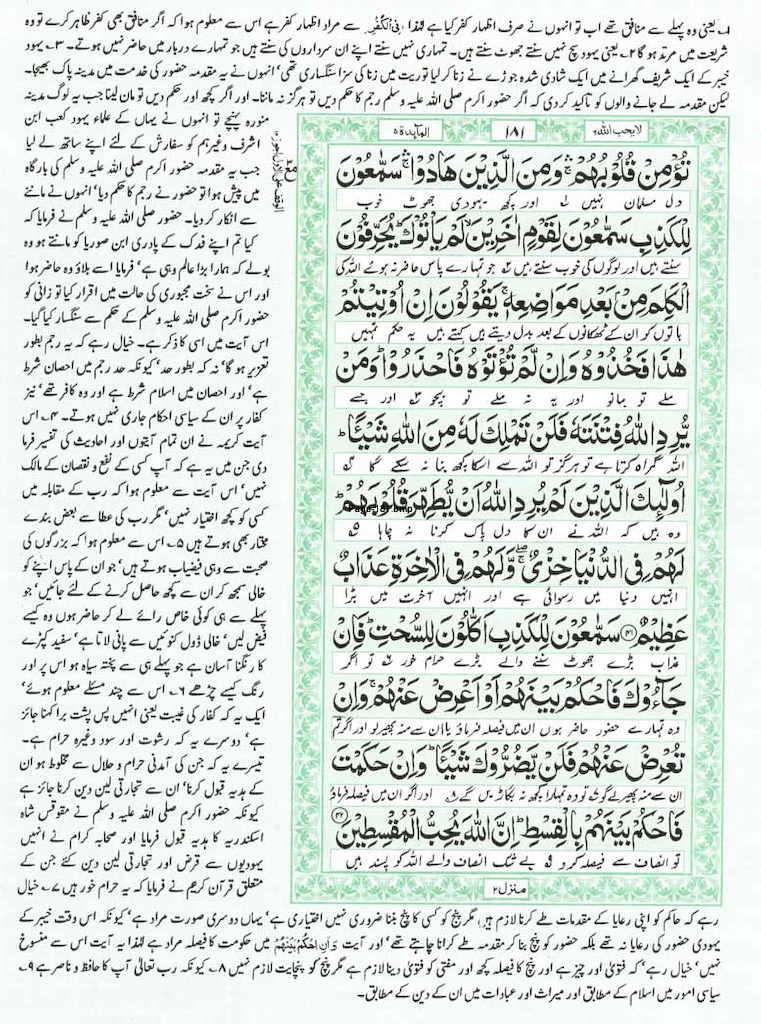 ۱۔ یعنی وہ پہلے سے منافق تھے اب تو انہوں نے صرف اظہار کفر کیا ہے لہٰذا فِی الْکُفْرِ سے مراد اظہار کفر ہے اس سے معلوم ہوا کہ اگر منافق بھی کفر ظاہر کرے تو وہ
شریعت میں مرتد ہو گا ۲۔ یعنی یہود سچ نہیں سنتے جھوٹ سنتے ہیں۔ تمہاری نہیں سنتے اپنے ان سرداروں کی سنتے ہیں جو تمہارے دربار میں حاضر نہیں ہوتے۔ ۳۔ یہود
خیبر کے ایک شریف گھرانے میں ایک شادی شدہ جوڑے نے زنا کر لیا توریت میں زنا کی سزا سنگساری تھی' انہوں نے یہ مقدمہ حضور کی خدمت میں مدینہ پاک بھیجا۔
لیکن مقدمہ لے جانے والوں کو تاکید کر دی کہ اگر حضور اکرم صلی اللہ علیہ وسلم رجم کا حکم دیں تو ہرگز نہ ماننا۔ اور اگر کچھ اور حکم دیں تو مان لینا جب یہ لوگ مدینہ
منورہ پہنچے تو انہوں نے یہاں کے علماء یہود کعب ابن
اشرف وغیرہم کو سفارش کے لئے اپنے ساتھ لے لیا
جب یہ مقدمہ حضور اکرم صلی اللہ علیہ وسلم کی بارگاہ
میں پیش ہوا تو حضور نے رجم کا حکم دیا' انہوں نے ماننے
سے انکار کر دیا۔ حضور صلی اللہ علیہ وسلم نے فرمایا کہ
کیا تم اپنے فدک کے پادری ابن صوریا کو مانتے ہو وہ
بولے کہ ہمارا بڑا عالم وہی ہے' فرمایا اسے بلاؤ وہ حاضر ہوا
اور اس نے سخت مجبوری کی حالت میں اقرار کیا تو زانی کو
حضور اکرم صلی اللہ علیہ وسلم کے حکم سے سنگسار کیا گیا۔
اس آیت میں اسی کا ذکر ہے۔ خیال رہے کہ یہ رجم بطور
تعزیر ہو گا' نہ کہ بطور حد' کیونکہ حد رجم میں احصان شرط
ہے' اور احصان میں اسلام شرط ہے اور وہ کافر تھے' نیز
کفار پر ان کے سیاسی احکام جاری نہیں ہوتے۔ ۴۔ اس
آیت کریمہ نے ان تمام آیتوں اور احادیث کی تفسیر فرما
دی جن میں یہ ہے کہ آپ کسی کے نفع و نقصان کے مالک
نہیں' اس آیت سے معلوم ہوا کہ رب کے مقابلہ میں
کسی کو کچھ اختیار نہیں' مگر رب کی عطا سے بعض بندے
مختار بھی ہوتے ہیں ۵۔ اس سے معلوم ہوا کہ بزرگوں کی
صحبت سے وہی فیضیاب ہوتے ہیں' جو ان کے پاس اپنے کو
خالی سمجھ کر ان سے کچھ حاصل کرنے کے لئے جائیں' جو
پہلے سے ہی کوئی خاص رائے لے کر حاضر ہوں وہ کیسے
فیض لیں' خالی ڈول کنوئیں سے پانی لاتا ہے' سفید کپڑے
کا رنگنا آسان ہے جو پہلے ہی سے پختہ سیاہ ہو اس پر اور
رنگ کیسے چڑھے ۶۔ اس سے چند مسئلے معلوم ہوئے'
ایک یہ کہ کفار کی غیبت یعنی انہیں پس پشت برا کہنا جائز
ہے' دوسرے یہ کہ رشوت اور سود وغیرہ حرام ہے۔
تیسرے یہ کہ جن کی آمدنی حرام و حلال سے مخلوط ہو ان
کے ہدیہ قبول کرنا' ان سے تجارتی لین دین کرنا جائز ہے
کیونکہ حضور اکرم صلی اللہ علیہ وسلم نے مقوقس شاہ
اسکندریہ کا ہدیہ قبول فرمایا اور صحابہ کرام نے انہیں
یہودیوں سے قرض اور تجارتی لین دین کئے جن کے
متعلق قرآن کریم نے فرمایا کہ یہ حرام خور ہیں ۷۔ خیال
لایحب اللہ ۶
۱۸۱
المآیدۃ ۵
تُؤْمِنْ قُلُوْبُهُمْ ۛۚ وَمِنَ الَّذِيْنَ هَادُوْا ۛۚ سَمّٰعُوْنَ
دل مسلمان نہیں ۱ اور کچھ یہودی جھوٹ خوب
لِلْكَذِبِ سَمّٰعُوْنَ لِقَوْمٍ اٰخَرِيْنَ ۙ لَمْ يَاْتُوْكَ ؕ يُحَرِّفُوْنَ
سنتے ہیں اور لوگوں کی خوب سنتے ہیں ۲ جو تمہارے پاس حاضر نہ ہوئے اللہ کی
الْكَلِمَ مِنْۢ بَعْدِ مَوَاضِعِهٖ ۚ يَقُوْلُوْنَ اِنْ اُوْتِيْتُمْ
باتوں کو ان کے ٹھکانوں کے بعد بدل دیتے ہیں کہتے ہیں یہ حکم تمہیں
هٰذَا فَخُذُوْهُ وَاِنْ لَّمْ تُؤْتَوْهُ فَاحْذَرُوْا ؕ وَمَنْ
ملے تو مانو اور یہ نہ ملے تو بچو ۳ اور جسے
يُّرِدِ اللّٰهُ فِتْنَتَهٗ فَلَنْ تَمْلِكَ لَهٗ مِنَ اللّٰهِ شَيْـًٔا ؕ
اللہ گمراہ کرنا چاہے تو ہرگز تو اللہ سے اس کا کچھ بنا نہ سکے گا ۴
اُولٰٓئِكَ الَّذِيْنَ لَمْ يُرِدِ اللّٰهُ اَنْ يُّطَهِّرَ قُلُوْبَهُمْ ؕ
وہ ہیں کہ اللہ نے ان کا دل پاک کرنا نہ چاہا ۵
لَهُمْ فِي الدُّنْيَا خِزْيٌ ۖۚ وَّلَهُمْ فِي الْاٰخِرَةِ عَذَابٌ
انہیں دنیا میں رسوائی ہے اور انہیں آخرت میں بڑا
عَظِيْمٌ ﴿۴۱﴾ سَمّٰعُوْنَ لِلْكَذِبِ اَكّٰلُوْنَ لِلسُّحْتِ ؕ فَاِنْ
عذاب بڑے جھوٹ سننے والے بڑے حرام خور ۶ تو اگر
جَآءُوْكَ فَاحْكُمْ بَيْنَهُمْ اَوْ اَعْرِضْ عَنْهُمْ ۚ وَاِنْ
وہ تمہارے حضور حاضر ہوں ان میں فیصلہ فرماؤ یا ان سے منہ پھیر لو اور اگر تم
تُعْرِضْ عَنْهُمْ فَلَنْ يَّضُرُّوْكَ شَيْـًٔا ؕ وَاِنْ حَكَمْتَ
ان سے منہ پھیر لو گے تو وہ تمہارا کچھ نہ بگاڑیں گے ۸ اور اگر ان میں فیصلہ فرماؤ
فَاحْكُمْ بَيْنَهُمْ بِالْقِسْطِ ؕ اِنَّ اللّٰهَ يُحِبُّ الْمُقْسِطِيْنَ ﴿۴۲﴾
تو انصاف سے فیصلہ کرو ۹ بے شک انصاف والے اللہ کو پسند ہیں
منزل ۲
رہے کہ حاکم کو اپنی رعایا کے مقدمات طے کرنا لازم ہیں' مگر پنچ کو کسی کا پنچ بننا ضروری نہیں اختیاری ہے' یہاں دوسری صورت مراد ہے' کیونکہ اس وقت خیبر کے
یہودی حضور کی رعایا نہ تھے بلکہ حضور کو پنچ بنا کر مقدمہ طے کرانا چاہتے تھے' اور آیت وَاَنِ احْکُمْ بَیْنَهُمْ میں حکومت کا فیصلہ مراد ہے لہٰذا یہ آیت اس سے منسوخ
نہیں' خیال رہے' کہ فتویٰ اور چیز ہے اور پنچ کا فیصلہ کچھ اور مفتی کو فتویٰ دینا لازم ہے مگر پنچ کو پنچایت لازم نہیں ۸۔ کیونکہ رب تعالیٰ آپ کا حافظ و ناصر ہے ۹۔
سیاسی امور میں اسلام کے مطابق اور میراث اور عبادات میں ان کے دین کے مطابق۔